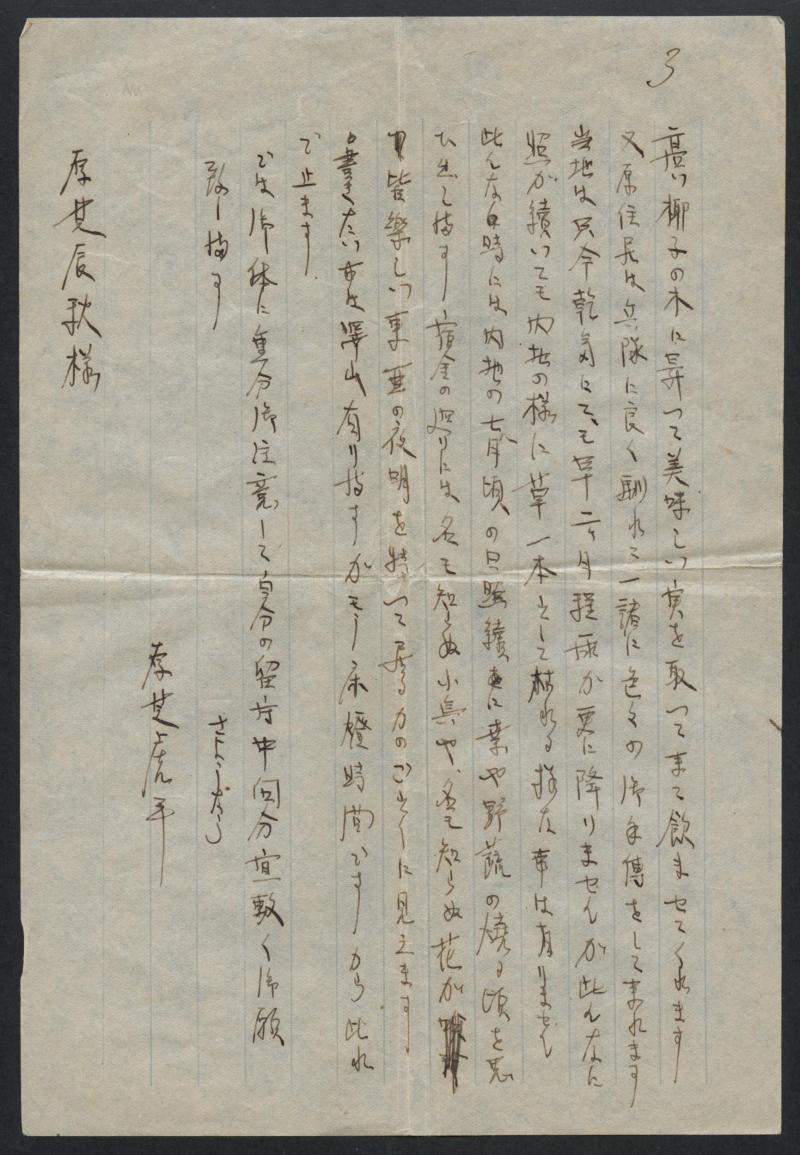 3
高い椰子の木に昇つて美味しい実を取つて来て飲ませてくれます
又原住民は兵隊に良く馴れて一諸に色々の御手傳をしてまれます
当地は只今乾気にても早二ヶ月程雨が更に降りませんが此んなに
照が續いても内地の様に草一本として枯れる様な事は有りません
此んな時には内地の七八月頃の日照續きに葉や野蔬の燒る頃を思
ひ出し ます 宿舎の廻りには名も知らぬ小鳥や、名も知らぬ花が
皆樂しい東亜の夜明を待つて居るかのごとくに見えます、
書きたい事は澤山有りますがもう床燈時間ですから此れ
で止ます
では御体に重分御注意して自分の留守中何分宜敷く御願
致します
さようなら
虎平
辰秋様